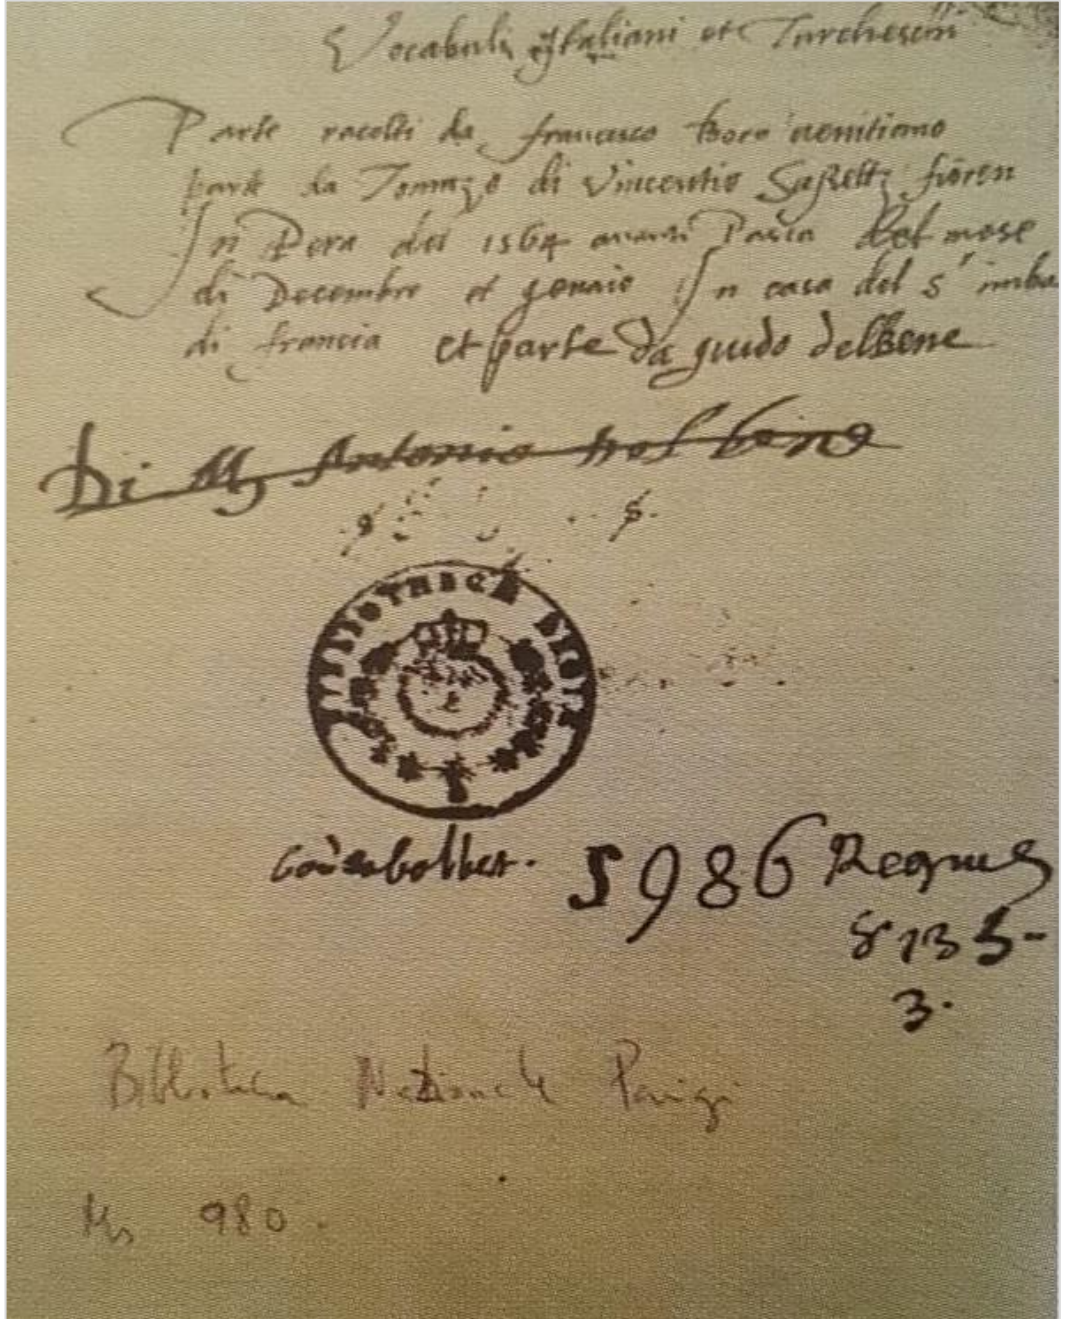 Vocabuli Italiani et Turcheschi
Parte racolti da francesco venitiano
parte da Tomazo di Vincentio Sassetti fioren
In Pera del 1564 avanti Pasca del mese
di Decembre et genaio In casa del s.r imba
di francia et parte da guido delbene
Di M Antonio del bene
BIBLIOTHECÆ REGIÆ
Cod. colbert. 5986 Regius
8135-
3.
Biblioteca Nazionale Parigi
Ms 980.